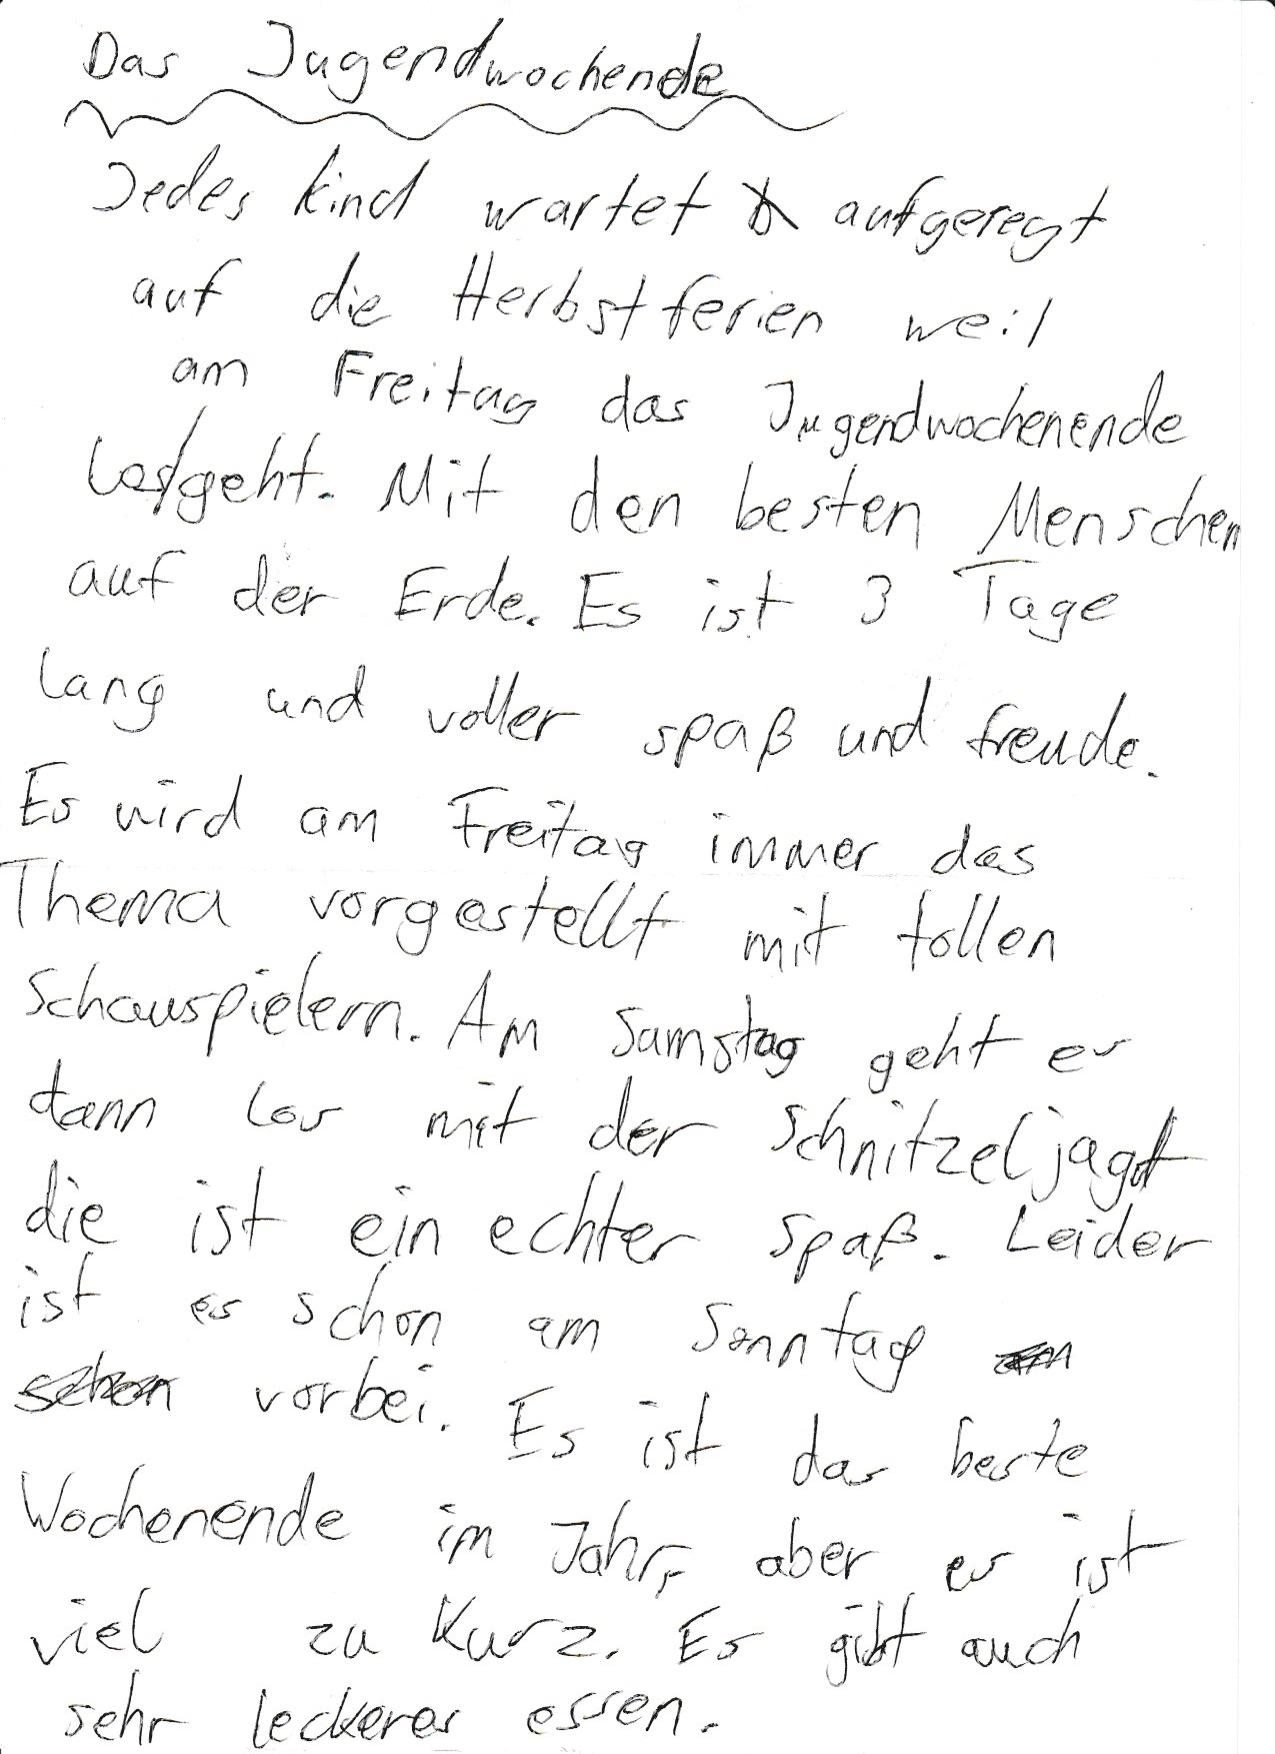 Das Jugendwochende
Jedes kind wartet aufgeregt
auf die Herbstferien weil
am Freitag das Jugendwochenende
Los/geht. Mit den besten Menschen
auf der Erde. Es ist 3 Tage
lang und voller spaß und freude.
Es wird am Freitag immer das
Thema vorgestellt mit tollen
Schauspielern. Am Samstag geht es
dann los mit der Schnitzeljagt
die ist ein echter Spaß. Leider
ist es schon am Sonntag
vorbei. Es ist das beste
Wochenende im Jahr, aber es ist
viel zu Kurz. Es gibt auch
sehr leckeres essen.